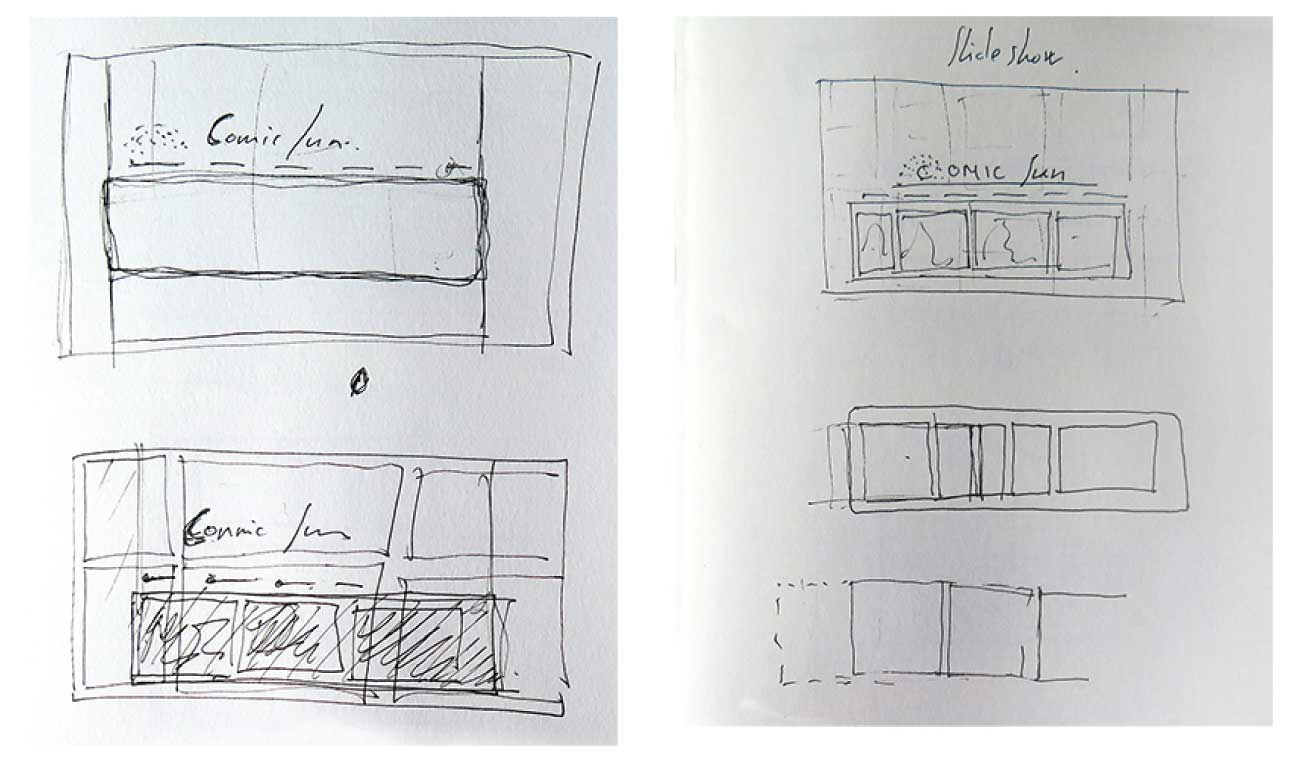 Comic Sun
Comic Sun
Slide show.
COMIC Sun